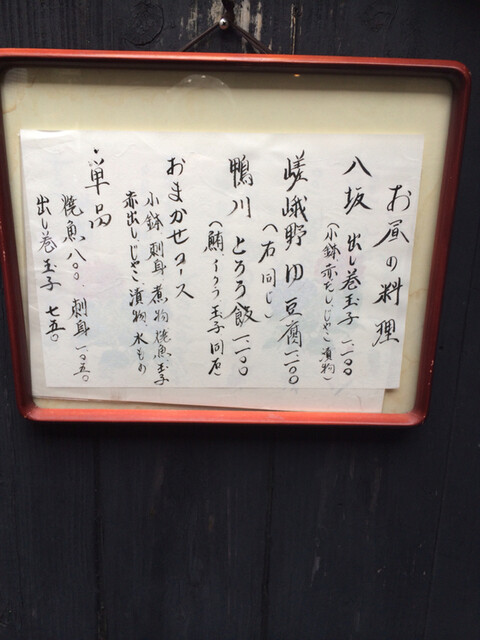 お昼の料理
八坂 出し巻玉子 一.一〇〇
（小鉢 赤だし、じゃこ 漬物）
嵯峨野 ゆ豆腐 一.一〇〇
（右同じ）
鴨川 とろろ飯 一.一〇〇
（鮪 イクラ 玉子 同右）
おまかせコース
小鉢 刺身 煮物 焼魚 玉子
赤出し、じゃこ、漬物、水もの
単品
焼魚 八〇〇 刺身 一.〇五〇
出し巻玉子 七五〇